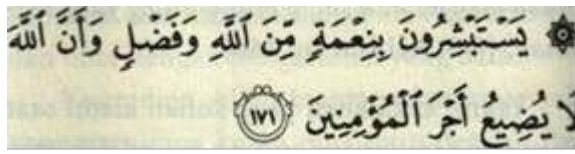 ۞ يَسْتَبْشِرُونَ بِنِعْمَةٍ مِّنَ ٱللَّهِ وَفَضْلٍ وَأَنَّ ٱللَّهَ
لَا يُضِيعُ أَجْرَ ٱلْمُؤْمِنِينَ ١٧١